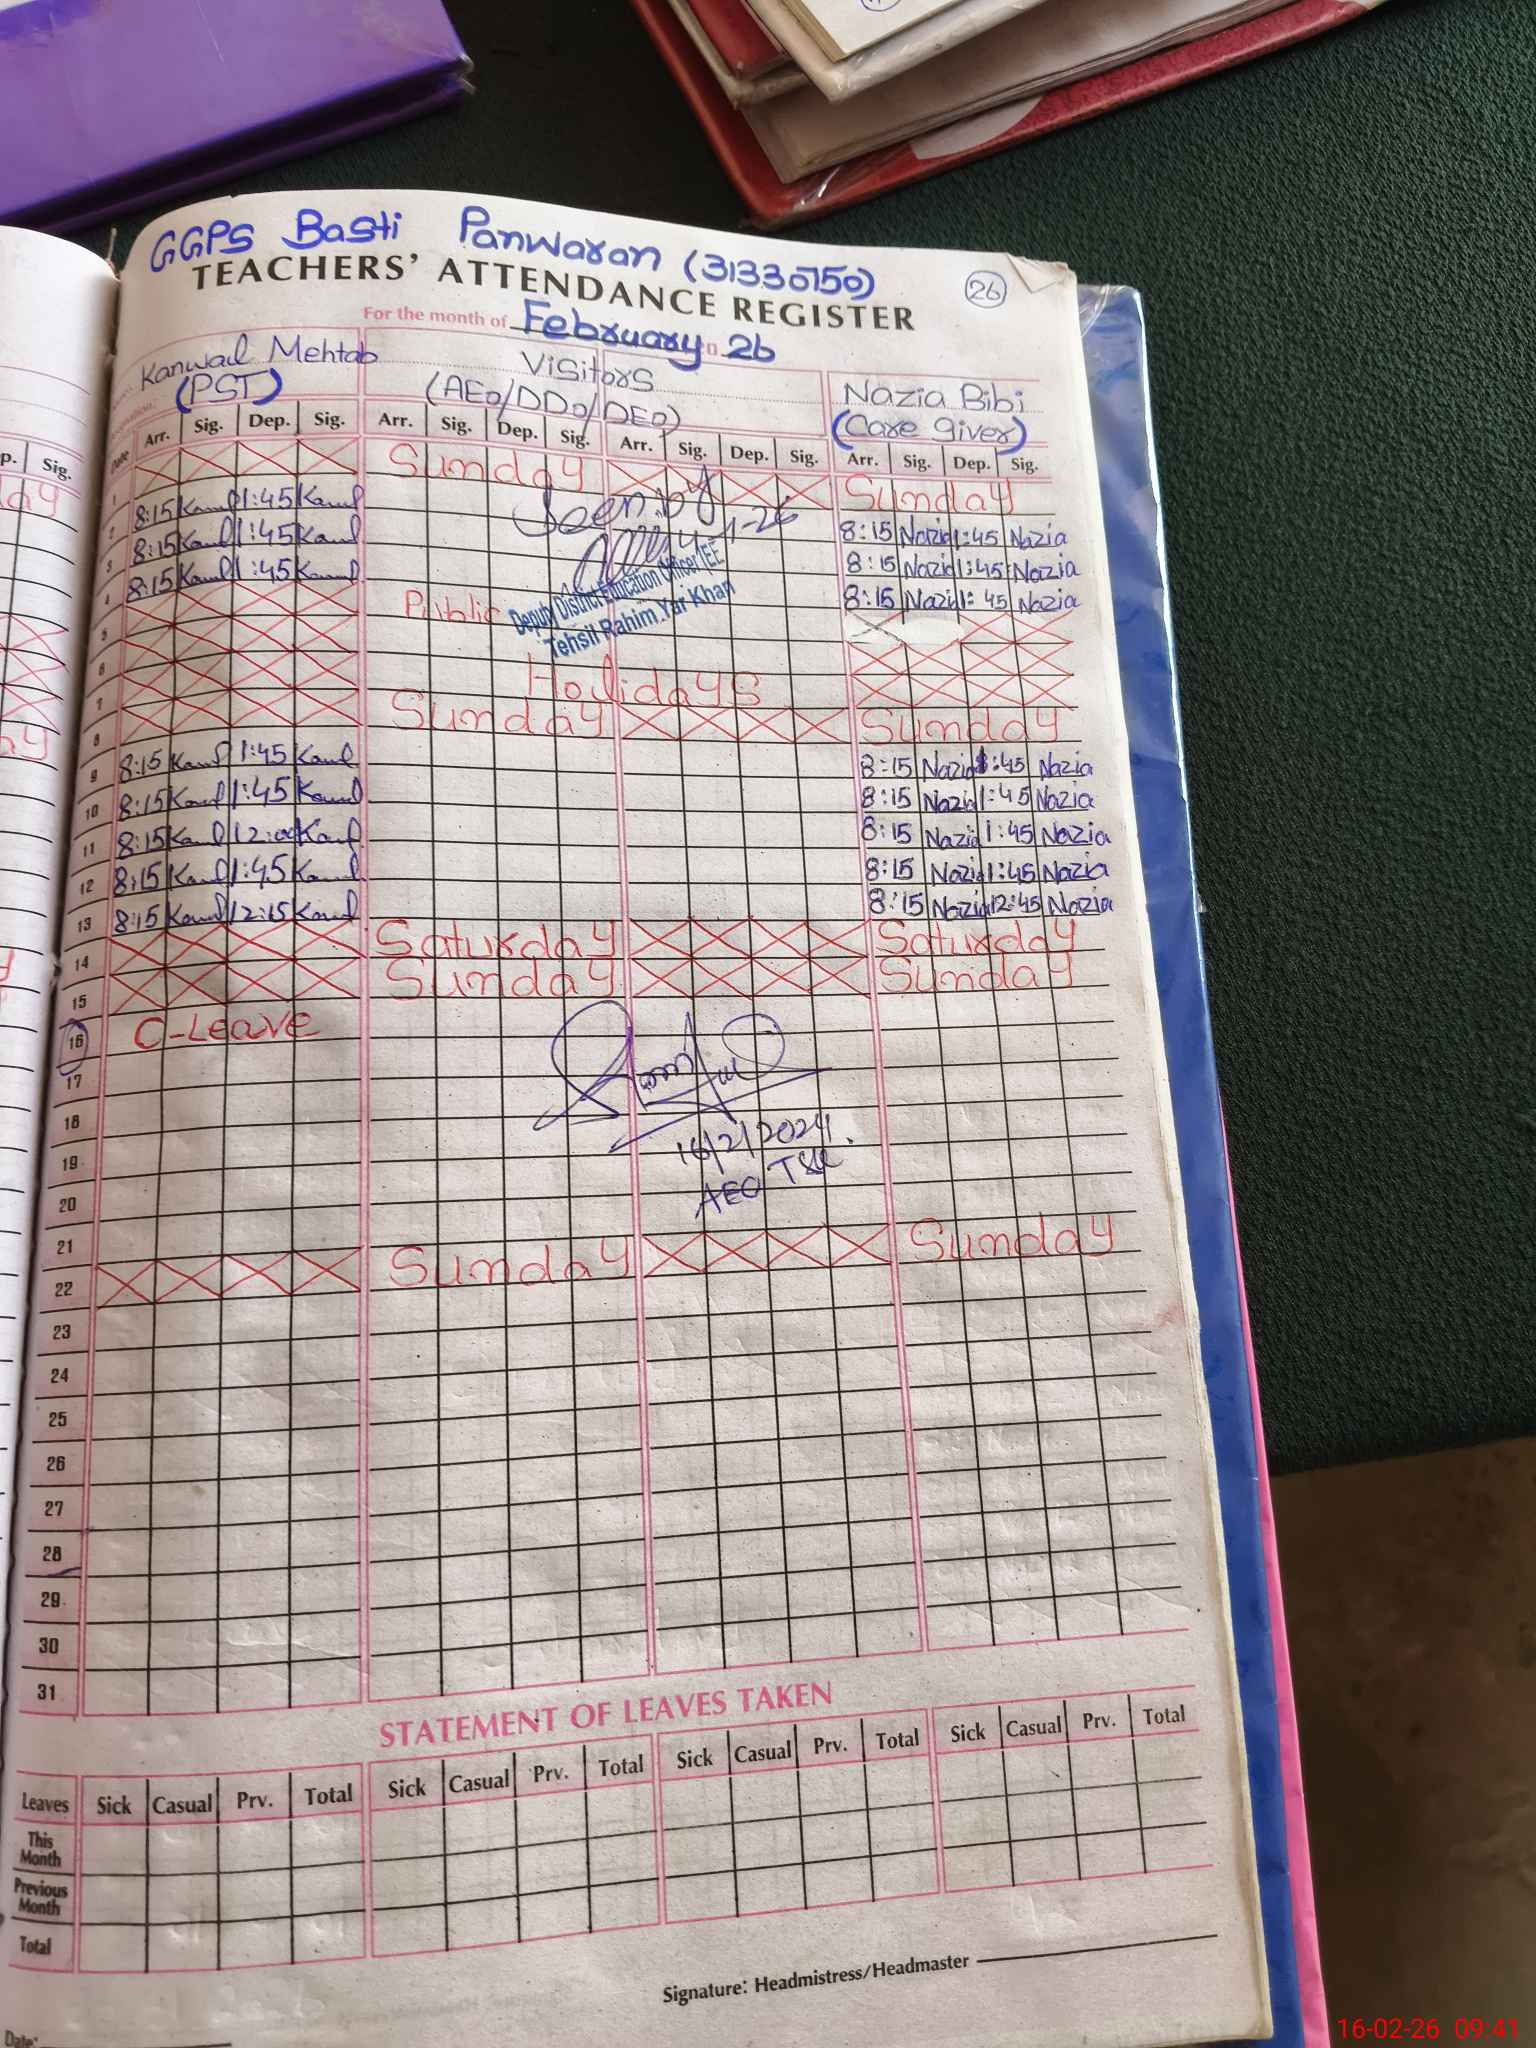 GGPS Basti Panwaran (31330750)
TEACHERS' ATTENDANCE REGISTER
26
For the month of February 26
Kanwal Mehtab
(PST)
Visitors
(AEO/DDO/DEO)
Nazia Bibi
(Care giver)
Date Arr. Sig. Dep. Sig. Arr. Sig. Dep. Sig. Arr. Sig. Dep. Sig. Arr. Sig. Dep. Sig.
1 Sunday Sunday
2 8:15 Kanwl 1:45 Kanwl Seen by 8:15 Nazia 1:45 Nazia
3 8:15 Kanwl 1:45 Kanwl 8:15 Nazia 1:45 Nazia
4 8:15 Kanwl 1:45 Kanwl 8:15 Nazia 1:45 Nazia
Deputy District Education Officer (EE
Tehsil Rahim Yar Khan
5 Public
6
7 Holidays
8 Sunday Sunday
9 8:15 Kanwl 1:45 Kanwl 8:15 Nazia 1:45 Nazia
10 8:15 Kanwl 1:45 Kanwl 8:15 Nazia 1:45 Nazia
11 8:15 Kanwl 12:00 Kanwl 8:15 Nazia 1:45 Nazia
12 8:15 Kanwl 1:45 Kanwl 8:15 Nazia 1:45 Nazia
13 8:15 Kanwl 12:15 Kanwl 8:15 Nazia 12:45 Nazia
14 Saturday Saturday
15 Sunday Sunday
16 C-Leave
17
18
19 16/2/2024
20 AEO
21
22 Sunday Sunday
23
24
25
26
27
28
29
30
31
STATEMENT OF LEAVES TAKEN
Leaves Sick Casual Prv. Total Sick Casual Prv. Total Sick Casual Prv. Total Sick Casual Prv. Total
This Month
Previous Month
Total
Signature: Headmistress/Headmaster
Date:
16-02-26 09:41